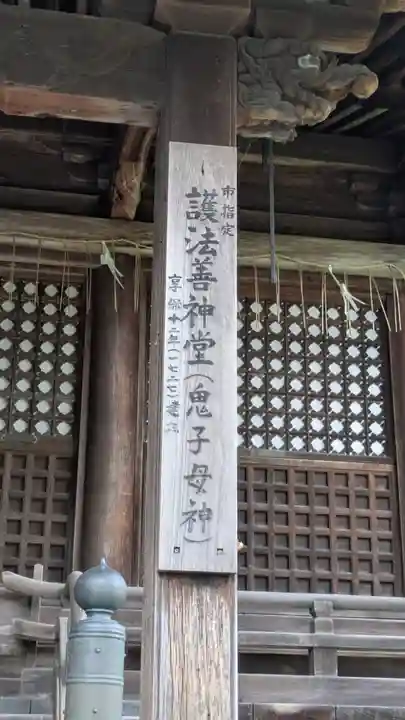 市指定
護法善神堂(鬼子母神)
享保十二年(一七二七)建立